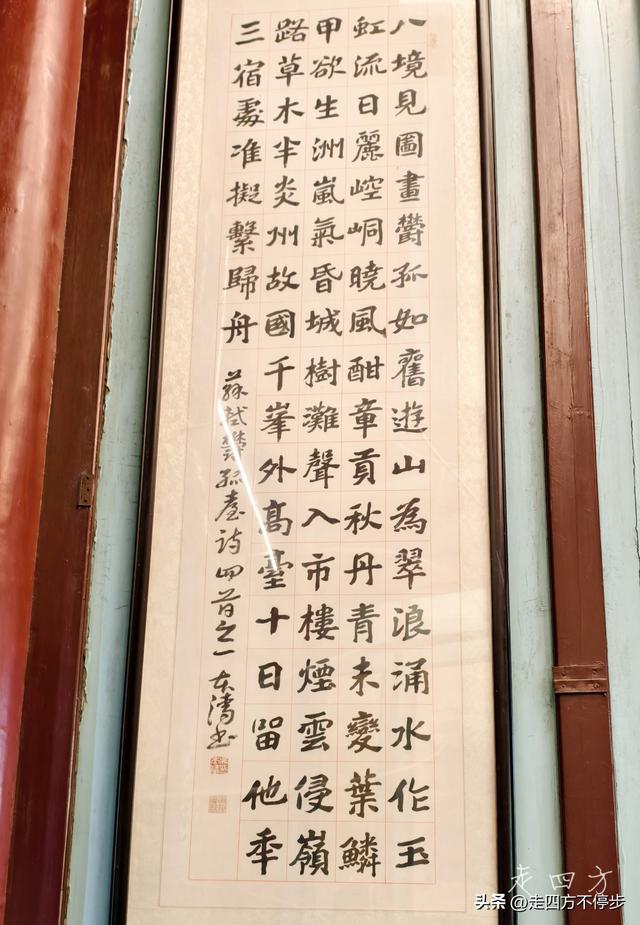 八境見圖畫鬱孤如舊遊山為翠浪涌水作玉
虹流日麗崆峒曉風酣章貢秋丹青未變葉鱗
甲欲生洲嵐氣昏城樹灘聲入市樓煙雲侵嶺
路草木半炎州故國千峯外高臺十日留他秊
三宿處准擬繫歸舟
蘇軾鬱孤臺詩四首之一
走四方
头条 @走四方不停步